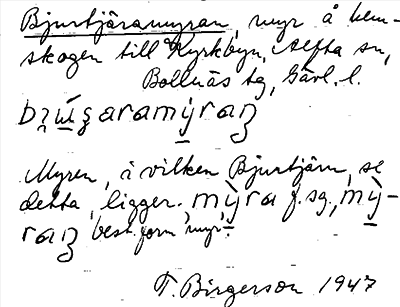 Bjurtjäramyran, myr å hem-
skogen till Kyrkbyn, Alfta sn,
Bollnäs tg, Gävl. l.
Myren, i vilken Bjurtjärn, se
detta, ligger. mỳra f. sg., mỳ-
best. form 'myr'.
T. Birgerson 1947